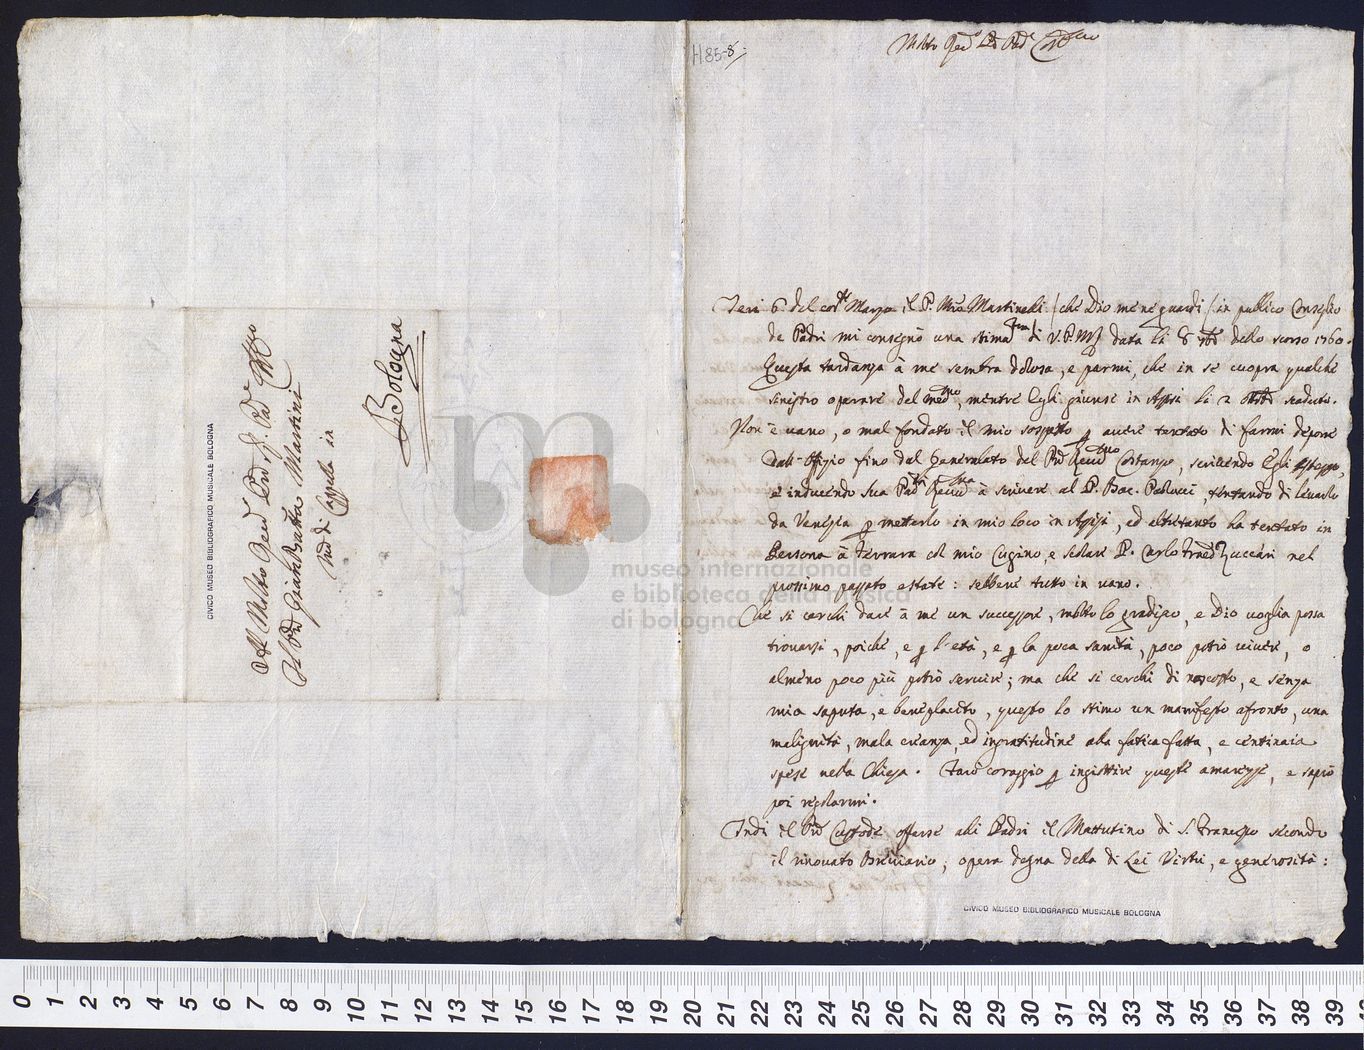 H85-8
Molto Rev.do P.re Pad.e
Ieri 6. del cor.te Marzo il P. M.ro Martinelli / che Dio me ne guardi / in publico Consiglio
de Padri mi consegnò una stima.ma di V.P.M.R data li 8 dello scorso 1760.
Questa tardanza à me sembra dolosa, e parmi, che in se cuopra qualche
sinistro operare del med.mo, mentre Egli giunse in Assisi li 2
Non è vano, o mal fondato il mio sospetto p avere tentato di farmi deporre
dall'Offizio fino dal Generalato del P.re Rev.mo Costanzo, scrivendo Egli stesso,
e inducendo sua Pad.tà Rev.ma à scrivere al P. Bac. Paolucci, tentando di levarlo
da Venezia p metterlo in mio loco in Assisi, ed altretanto ha tentato in
Persona à Ferrara col mio Cugino, e Scolare P. Carlo Zuccari nel
prossimo passato estate: sebbene tutto in vano.
Che si cerchi dare à me un successore, molto lo gradisco, e Dio voglia possa
trovarsi, poiche, e p l'età, e p la poca sanità, poco potrò vivere, o
almeno poco più potrò servire; ma che si cerchi di nascosto, e senza
mia saputa, e beneplacito, questo lo stimo un manifesto afronto, una
malignità, mala creanza, ed ingratitudine alla fatica fatta, e centinaia
spese nella Chiesa. Farò coraggio p inghiottire queste amarezze, e saprò
poi regolarmi.
Indi il P.re Custode offerse alli Padri il Mattutino di S. Francesco secondo
il rinovato Breviario; opera degna della di Lei Virtù, e generosità:
CIVICO MUSEO BIBLIOGRAFICO MUSICALE BOLOGNA
Al Molto Rev.do P.re Pad.e
Il P.re Giambatta Martini
M.ro di Cappella in
Bologna
CIVICO MUSEO BIBLIOGRAFICO MUSICALE BOLOGNA
museo internazionale
e biblioteca della musica
di bologna
0 1 2 3 4 5 6 7 8 9 10 11 12 13 14 15 16 17 18 19 20 21 22 23 24 25 26 27 28 29 30 31 32 33 34 35 36 37 38 39